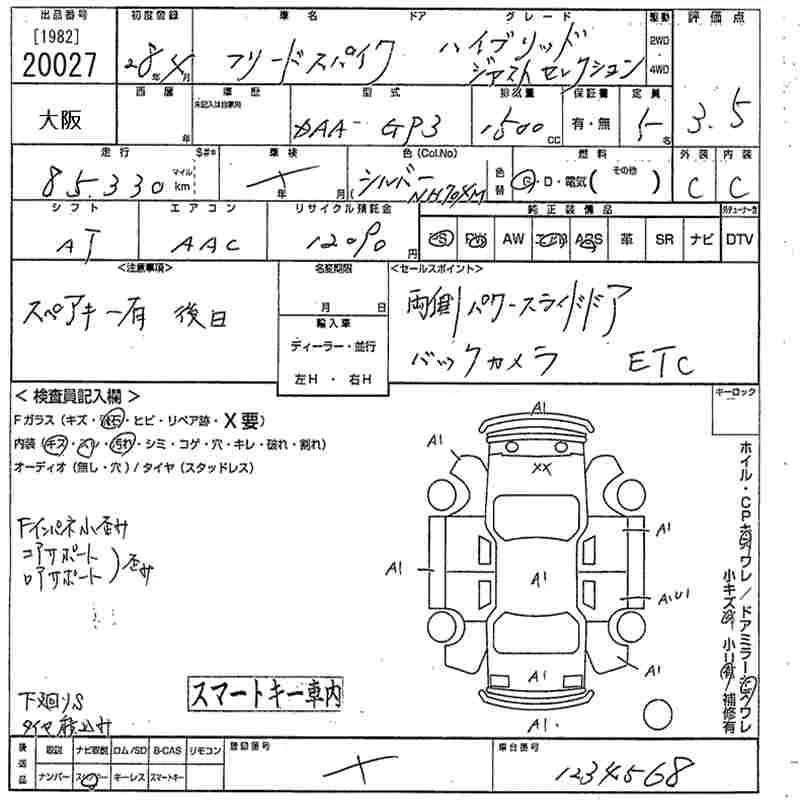 出品番号 初度登録 車名 ドア グレード 駆動 評価点
[1982]
20027
28年 月
フリードスパイク
ハイブリッド
ジャストセレクション
2WD
・
4WD
3.5
大阪
西暦 車歴 型式 排気量 保証書 定員
未記入は自家用
年
DAA-GP3
1500 CC
有・無
5 名
走行 S#* 車検 色(Col.No) 色替 燃料 外装 内装
85.330 マイル km
年 月
シルバー
NH704M
G・D・電気( その他 )
C C
シフト エアコン リサイクル預託金 純正装備品 別チューナー含
AT AAC 12090 円
PS PW AW エアB ABS 革 SR ナビ DTV
<注意事項> 名変期限 <セールスポイント>
スペアキー有 後日
月 日
輸入車
ディーラー・並行
左H ・ 右H
両側パワースライドドア
バックカメラ ETC
<検査員記入欄>
キーロック
Fガラス(キズ・飛石・ヒビ・リペア跡・X要)
内装(キズ・スリ・汚れ・シミ・コゲ・穴・キレ・破れ・割れ)
オーディオ(無し・穴)/タイヤ(スタッドレス)
A1
A1
XX
Fインパネ小歪み
コアサポート
ロアサポート
)歪み
A1
A1
A1
A1U1
A1
A1
A1
下廻りS
タイヤ積込み
スマートキー車内
後送品 取説 ナビ取説 ロム/SD B-CAS リモコン
ナンバー スペアキー キーレス スマートキー
登録番号
車台番号
1234568